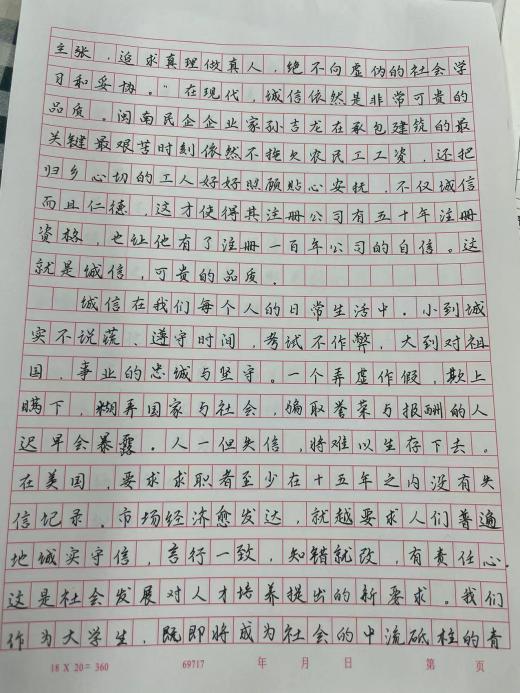 主张，追求真理做真人，绝不向虚伪的社会学
日和妥协。”在现代，诚信依然是非常可贵的
品质。闽南民企企业家孙吉龙在承包建筑的最
关键最艰苦时刻依然不拖欠农民工工资，还把
归乡心切的工人好好照顾贴心安抚，不仅诚信
而且仁德，这才使得其注册公司有五十年注册
资格，也让他有了注册一百年公司的自信。这
就是诚信，可贵的品质。
诚信在我们每个人的日常生活中。小到诚
实不说谎、遵守时间，考试不作弊，大到对祖
国、事业的忠诚与坚守。一个弄虚作假，欺上
瞒下，糊弄国家与社会，骗取誉荣与报酬的人
迟早会暴露。人一但失信，将难以生存下去。
在美国，要求求职者至少在十五年之内没有失
信记录。市场经济愈发达，就越要求人们普遍
地诚实守信，言行一致，知错就改，有责任心。
这是社会发展对人才培养提出的新要求。我们
作为大学生，既即将成为社会的中流砥柱的青
18 X 20= 360 69717 年 月 日 第 页